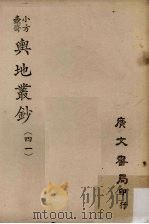 小方壺齋
輿地叢鈔
(四一)
廣文書局印行